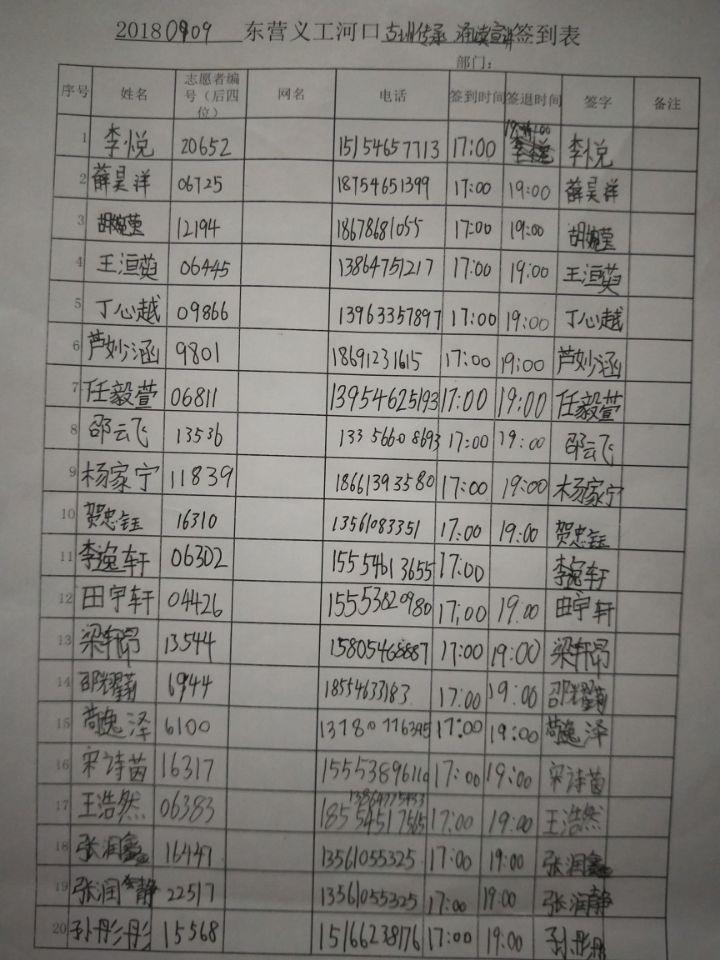 20180909 东营义工河口古训传承 诵读宣讲签到表
部门:
序号 姓名 志愿者编号(后四位) 网名 电话 签到时间 签退时间 签字 备注
1 李悦 20652 15154657713 17:00 李悦
2 薛昊洋 06725 18754651399 17:00 19:00 薛昊洋
3 胡婉莹 12194 18678681055 17:00 19:00 胡婉莹
4 王洹萸 06445 13864751217 17:00 19:00 王洹萸
5 丁心越 09866 13963357897 17:00 19:00 丁心越
6 芦妙涵 9801 18691231615 17:00 19:00 芦妙涵
7 任毅萱 06811 13954625193 17:00 19:00 任毅萱
8 邵云飞 13536 13356608693 17:00 19:00 邵云飞
9 杨家宁 11839 18661393580 17:00 19:00 杨家宁
10 贺忠钰 16310 13561083351 17:00 19:00 贺忠钰
11 李逸轩 06302 15554613655 17:00 李逸轩
12 田宇轩 04426 15553820980 17:00 19:00 田宇轩
13 梁轩昂 13544 15805468887 17:00 19:00 梁轩昂
14 邵耀菊 6944 18554633183 17:00 19:00 邵耀菊
15 苟逸泽 6100 13780776345 17:00 19:00 苟逸泽
16 宋诗茵 16317 17:00 19:00 宋诗茵
17 王浩然 06383 17:00 19:00 王浩然
18 张润鑫 16447 13561055325 17:00 19:00 张润鑫
19 张润静 22517 13561055325 17:00 19:00 张润静
20 孙彤彤 15568 15166238176 17:00 19:00 孙彤彤